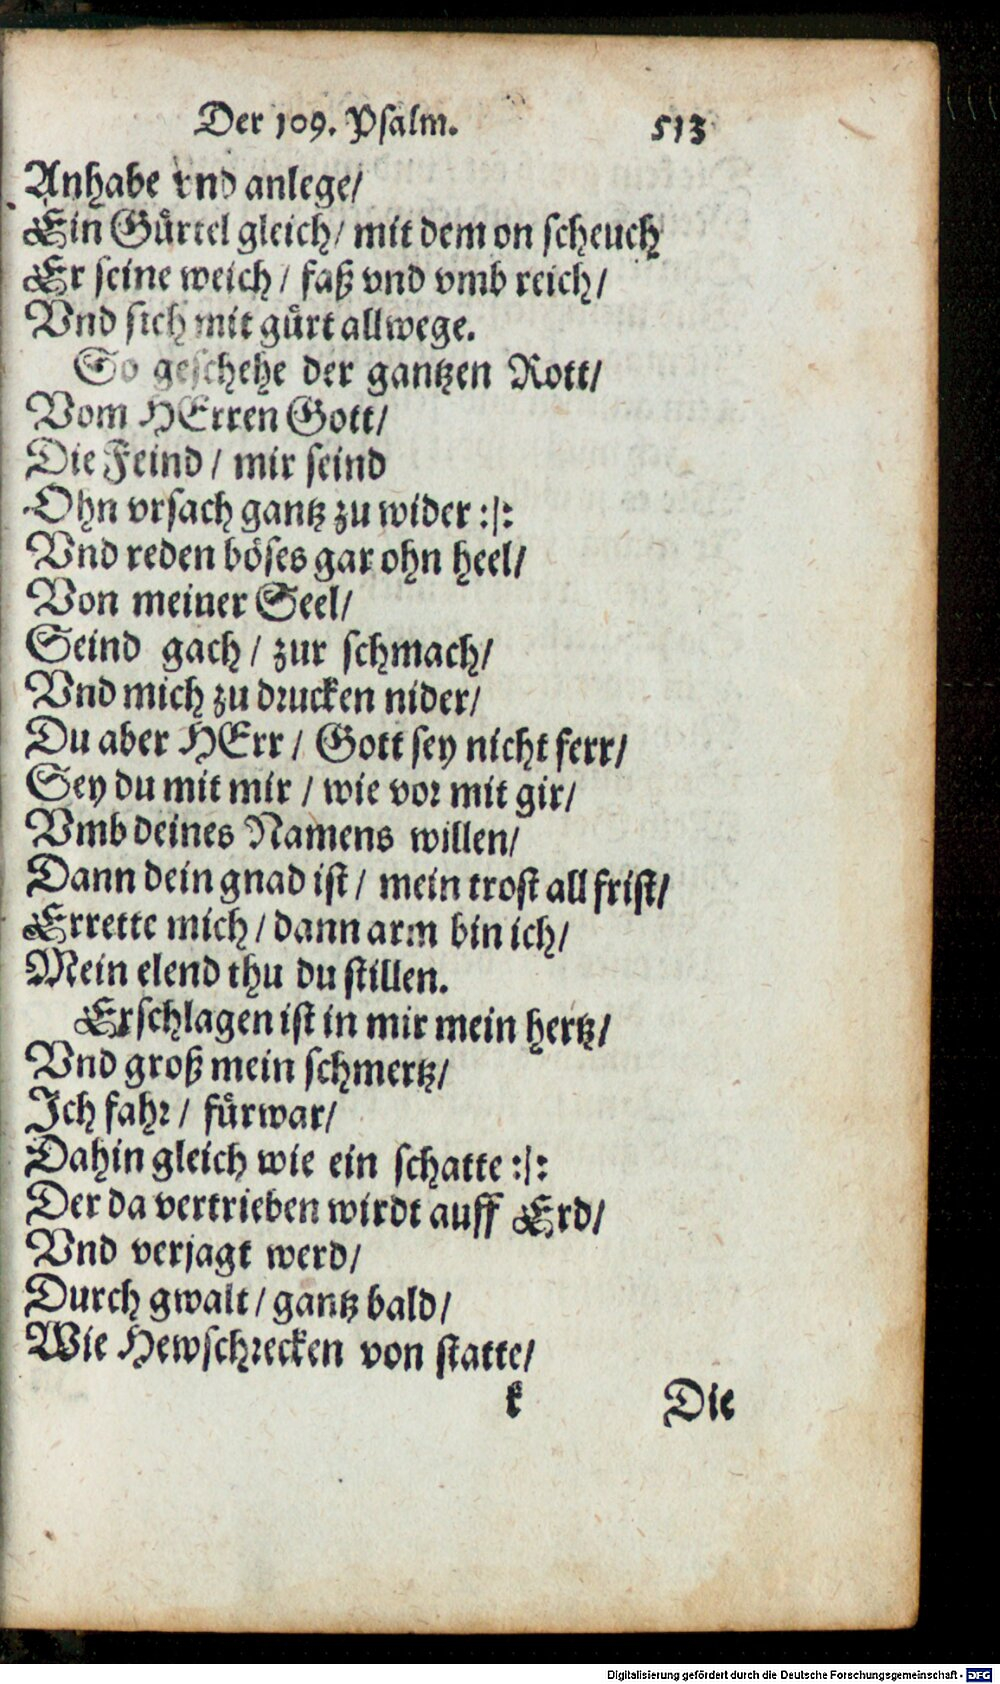 Der 109. Psalm. 513
Anhabe vnd anlege/
Ein Gürtel gleich/ mit dem on scheuch
Er seine weich/ faß vnd vmb reich/
Vnd sich mit gürt allwege.
So geschehe der gantzen Rott/
Vom HErren Gott/
Die Feind/ mir seind
Ohn vrsach gantz zu wider :|:
Vnd reden böses gar ohn heel/
Von meiner Seel/
Seind gach/ zur schmach/
Vnd mich zu drucken nider/
Du aber HErr/ Gott sey nicht ferr/
Sey du mit mir/ wie vor mit gir/
Vmb deines Namens willen/
Dann dein gnad ist/ mein trost all frist/
Errette mich/ dann arm bin ich/
Mein elend thu du stillen.
Erschlagen ist in mir mein hertz/
Vnd groß mein schmertz/
Ich fahr/ fürwar/
Dahin gleich wie ein schatte :|:
Der da vertrieben wirdt auff Erd/
Vnd verjagt werd/
Durch gwalt/ gantz bald/
Wie Hewschrecken von statte/
k Die
Digitalisierung gefördert durch die Deutsche Forschungsgemeinschaft - DFG